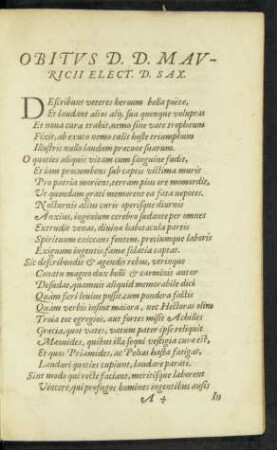 OBITVS D. D. MAV-
RICII ELECT. D. SAX.
DEscribunt veteres heroum bella poëtæ,
Et laudant alios alij, sua quenque voluptas
Et noua cura trahit, nemo sine vate trophæum
Fixit, ab exuto nemo tulit hoste triumphum
Illustris nullo laudum præcone suarum.
O quoties aliquis vitam cum sanguine fudit,
Et iam procumbens sub capsi victima muris
Pro patria moriens, terram pius ore momordit,
Vt quondam grati memorent ea fata nepotes.
Nocturnis alius curis operisque diurnis
Anxius, ingenium cerebro sudante per omnes
Extrudit venas, diuinæ habitacula partis
Spirituum exiccans fontem, preciumque laboris
Exiguum ingentis, famæ solatia captat.
Sic describendis & agendis rebus, vtrinque
Conatu magno dux belli & carminis autor
Desudat, quamuis aliquid memorabile dici
Quàm fieri leuius possit, cum pondera factis
Quàm verbis insint maiora, nec Hectoras olim
Troia tot egregios, aut fortes misit Achilles
Græcia, quot vates, vatum pater ipse reliquit
Mæonides, quibus illa sequi vestigia cura est,
Et quos Priamides, ac Peleus hasta fatigat,
Laudari quoties cupiunt, laudare parati.
Sint modo qui recte faciant, meritisque laborent
Vincere, qui profugos homines ingentibus ausis
A 4 In